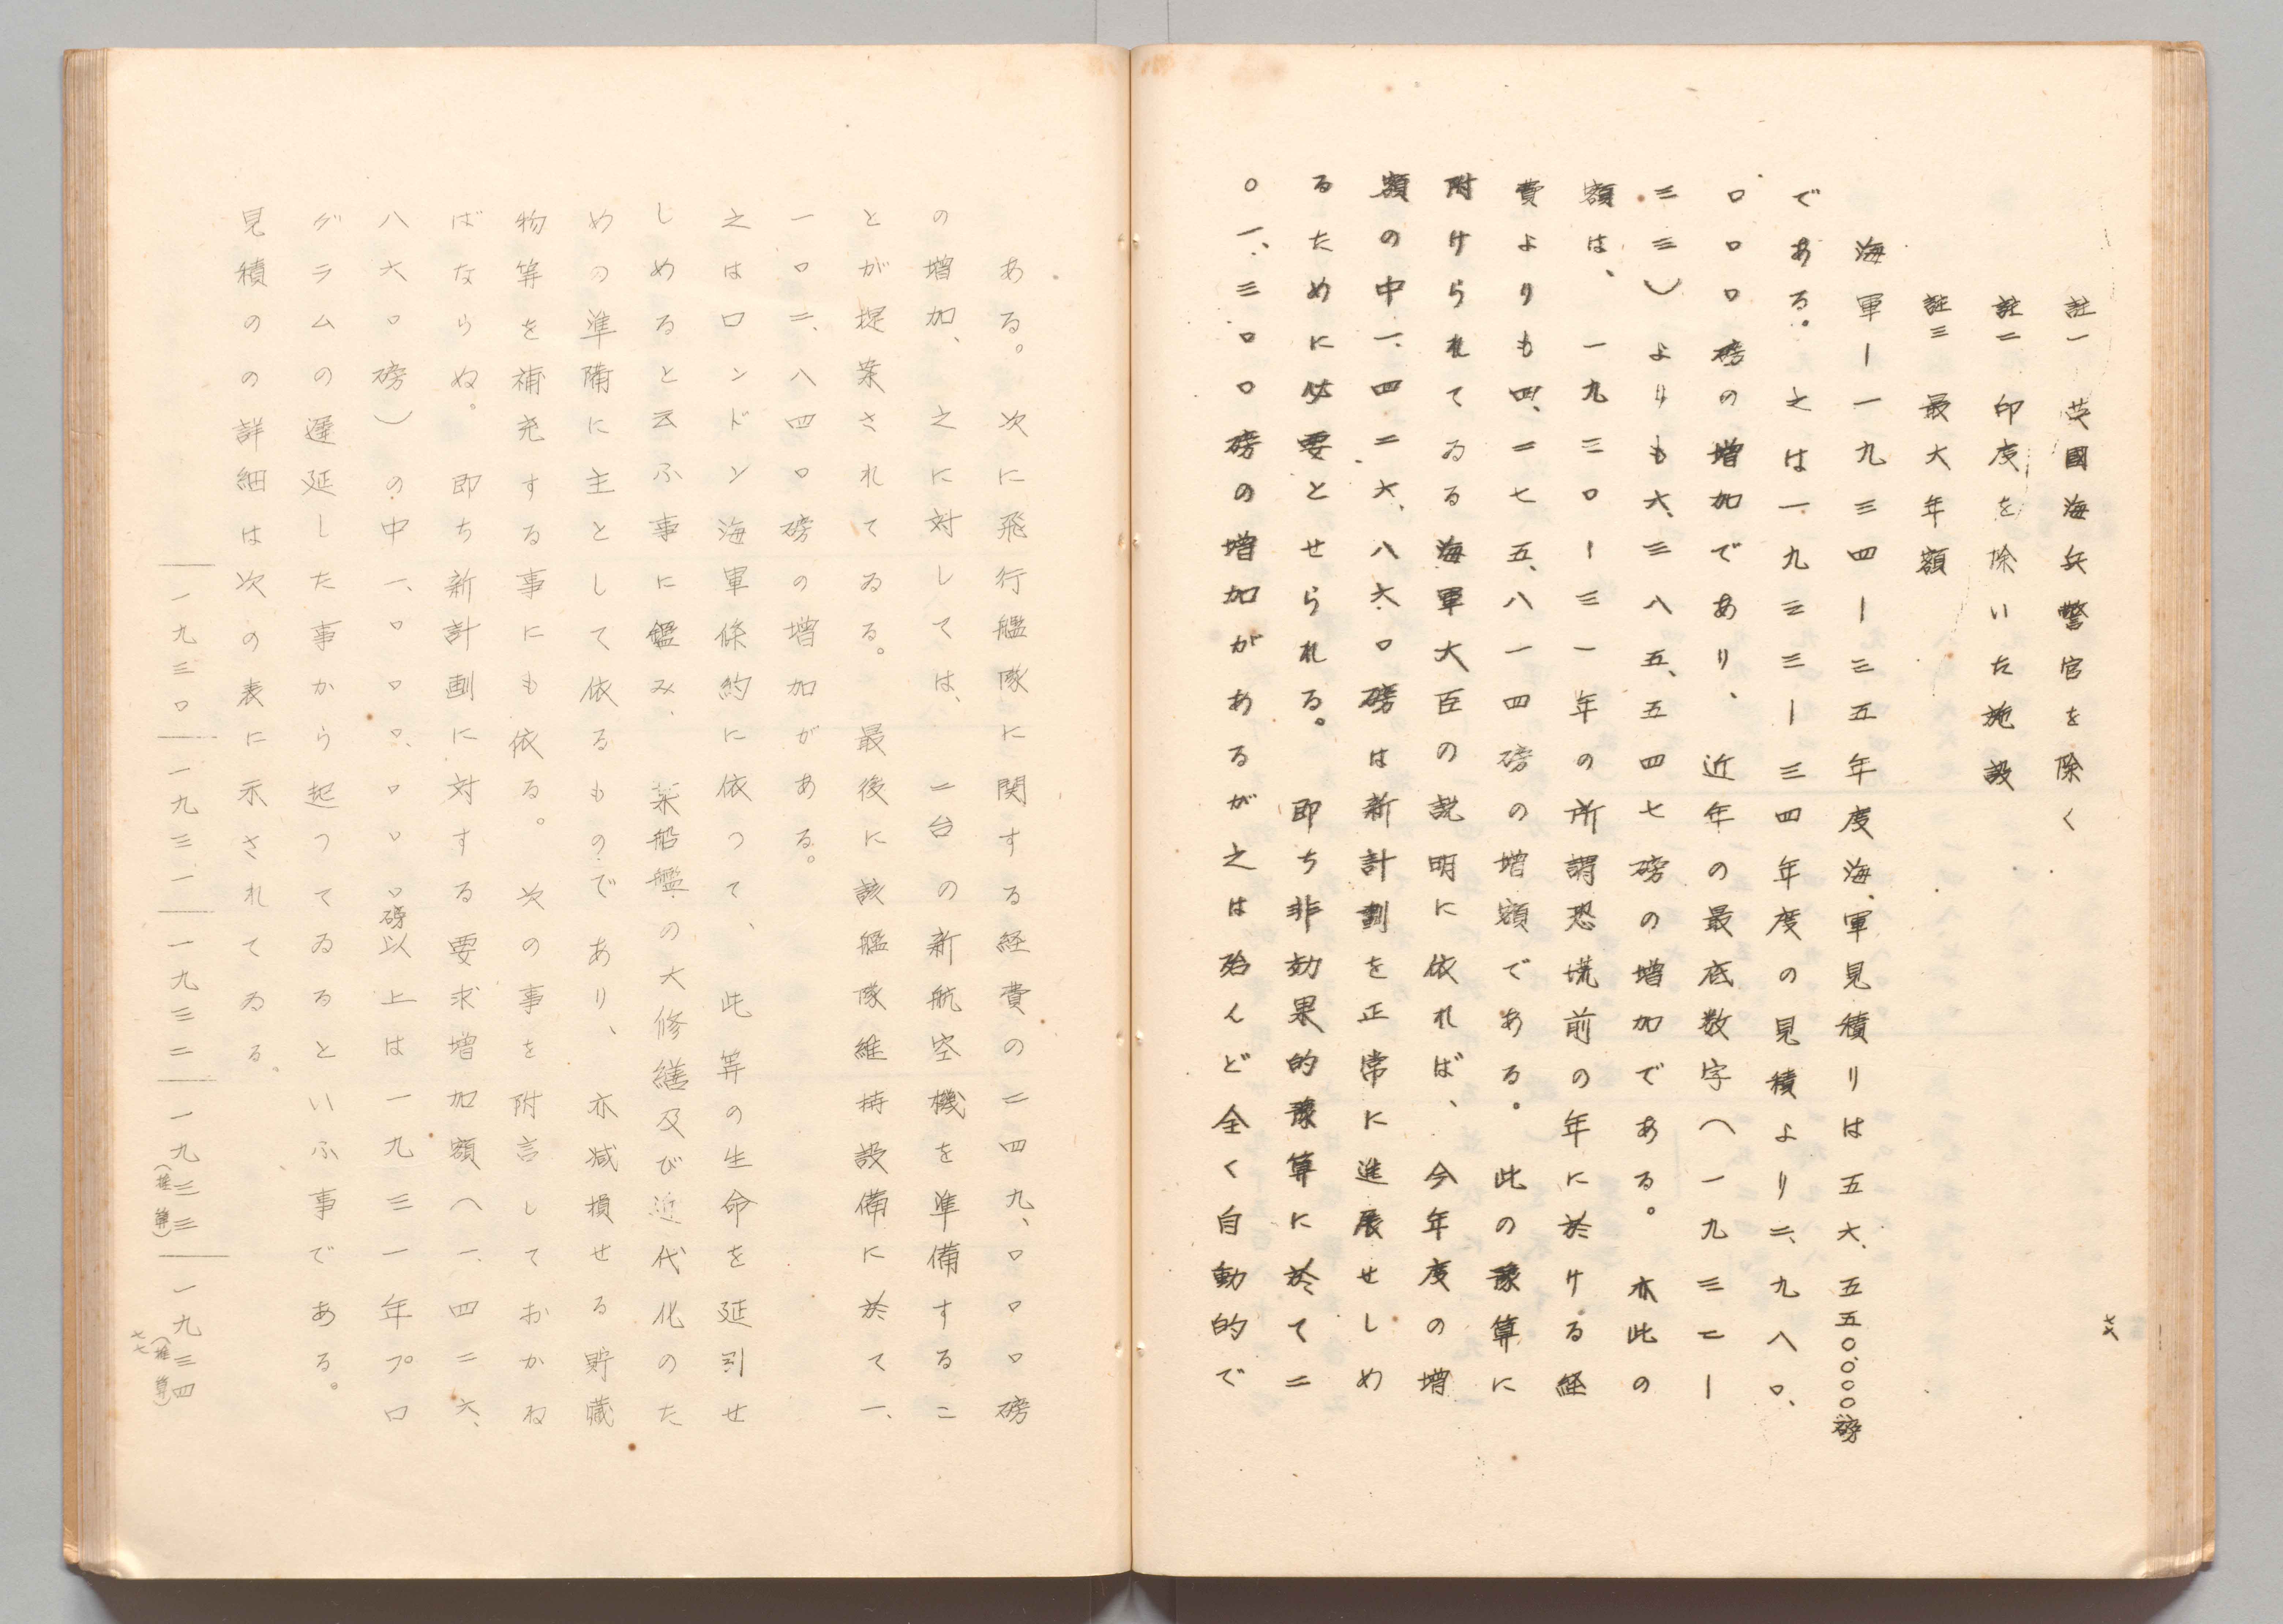 註一 英國海兵警官を除く
註二 印度を除いた施設
註三 最大年額
海軍ー一九三四ー三五年度海、軍見積りは五六、五五〇、〇〇〇磅
である。之は一九三三ー三四年度の見積より二、九八〇、
〇〇〇磅の増加であり、近年の最底数字(一九三二ー
三三)よりも六、三八五、五四七磅の増加である。亦此の
額は、一九三〇ー三一年の所謂恐慌前の年に於ける経
費よりも四、二七五、八一四磅の増額である。此の豫算に
附けられてゐる海軍大臣の説明に依れば、今年度の増
額の中一、四二六、八六〇磅は新計劃を正常に進展せしめ
るために必要とせられる。即ち非効果的豫算に於て二
〇一、三〇〇磅の増加があるが之は殆んど全く自動的で
七六
ある。次に飛行艦隊に関する経費の二四九、〇〇〇磅
の増加、之に対しては、二台の新航空機を準備するこ
とが提案されてゐる。最後に該艦隊維持設備に於て一、
一〇二、八四〇磅の増加がある。
之はロンドン海軍條約に依つて、此等の生命を延引せ
しめると云ふ事に鑑み、某船艦の大修繕及び近代化のた
めの準備に主として依るものであり、亦減損せる貯蔵
物等を補充する事にも依る。次の事を附言しておかね
ばならぬ。即ち新計劃に対する要求増加額(一、四二六、
八六〇磅)の中一、〇〇〇、〇〇〇磅以上は一九三一年プロ
グラムの遅延した事から起つてゐるといふ事である。
見積のの詳細は次の表に示されてゐる。
一九三〇 一九三一 一九三二 一九三三(推算) 一九三四(推算)
七七